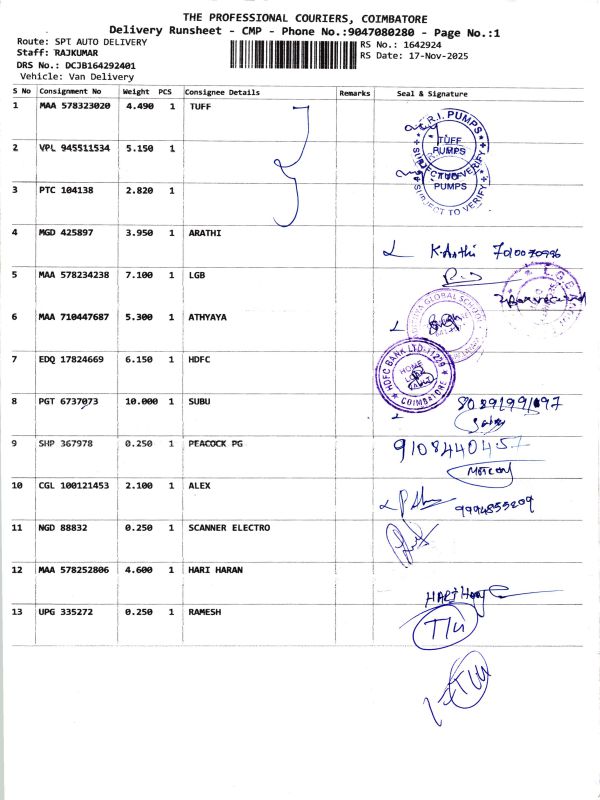 THE PROFESSIONAL COURIERS, COIMBATORE
Delivery Runsheet - CMP - Phone No.:9047080280 - Page No.:1
Route: SPT AUTO DELIVERY
RS No.: 1642924
Staff: RAJKUMAR
RS Date: 17-Nov-2025
DRS No.: DCJB164292401
Vehicle: Van Delivery
S No Consignment No Weight PCS Consignee Details Remarks Seal & Signature
1 MAA 578323020 4.490 1 TUFF
R.I. PUMPS
TUFF PUMPS
SUBJECT TO VERIFY
2 VPL 945511534 5.150 1
3 PTC 104138 2.820 1
PUMPS
SUBJECT TO VERIFY
4 MGD 425897 3.950 1 ARATHI
K.Arthi 7010070996
5 MAA 578234238 7.100 1 LGB
L.G.B
6 MAA 710447687 5.300 1 ATHYAYA
GLOBAL SCHOOL
7 EDQ 17824669 6.150 1 HDFC
HDFC BANK LTD-11229
HOME LOAN
COIMBATORE
8 PGT 6737073 10.000 1 SUBU
9 SHP 367978 0.250 1 PEACOCK PG
9108440457
10 CGL 100121453 2.100 1 ALEX
9994855209
11 NGD 88832 0.250 1 SCANNER ELECTRO
12 MAA 578252806 4.600 1 HARI HARAN
13 UPG 335272 0.250 1 RAMESH